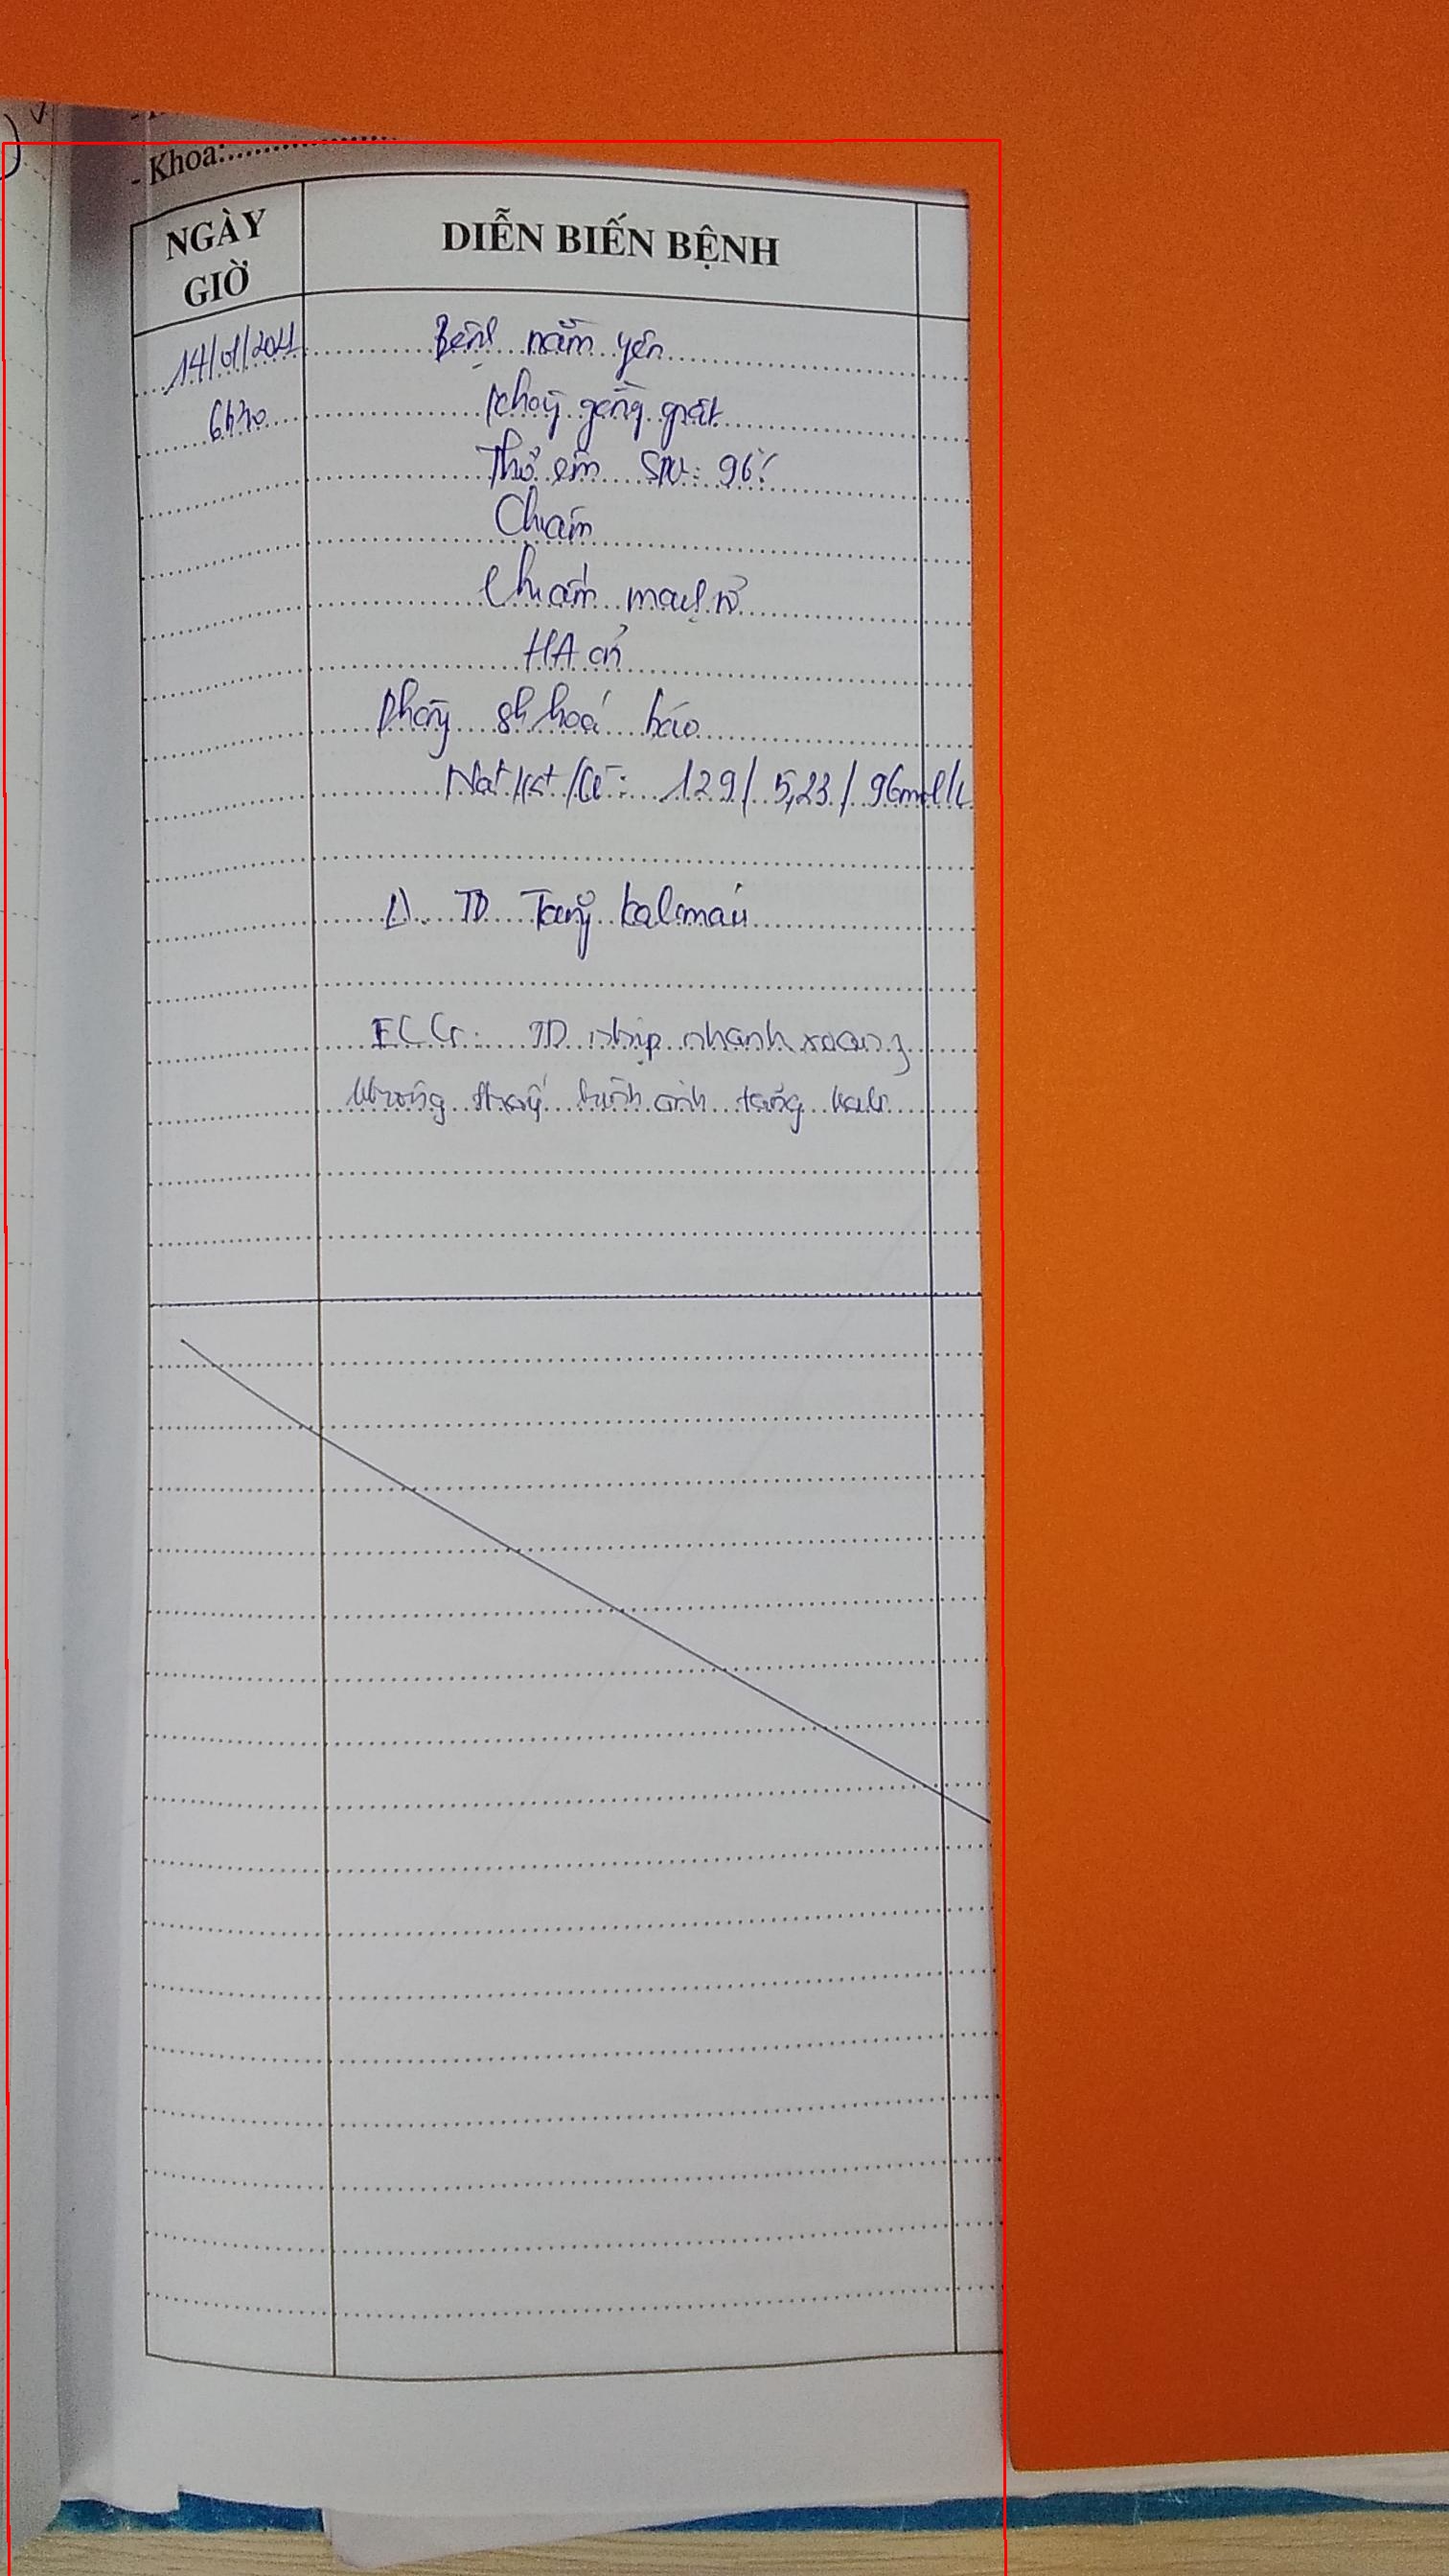 - Khoa:
NGÀY GIỜ
DIỄN BIẾN BỆNH
14/01/2021
Bệnh nằm yên
6h20
không gồng giật
Thở êm SpO2: 96%
Chi ấm
mạch rõ
HA ổn
Phòng sh hoá báo
Na+/K+/Cl-: 129/ 5,23/ 96mol/L
TD Tăng kali máu
ECG: TD nhịp nhanh xoang
không thấy hình ảnh tăng kali